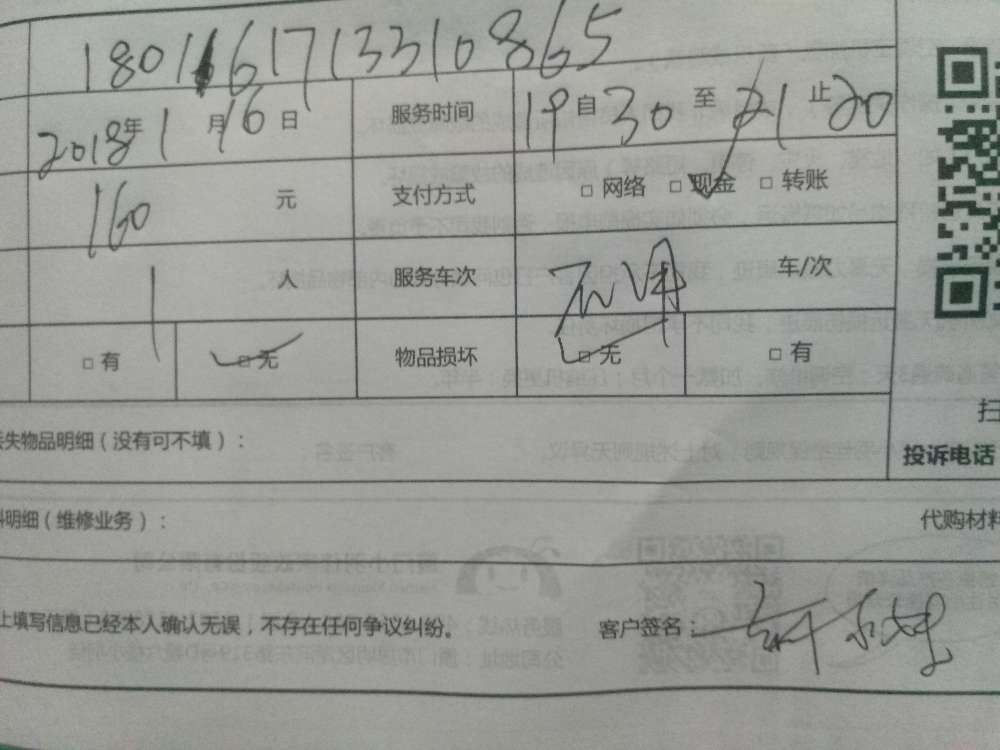 1801161713310865
2018年1月16日 服务时间 19自30至21止20
160 元 支付方式 □网络 □现金 □转账
1 人 服务车次 车/次
□有 □无 物品损坏 □无 □有
失物品明细(没有可不填): 扫
投诉电话
料明细(维修业务): 代购材料
上填写信息已经本人确认无误,不存在任何争议纠纷。 客户签名: